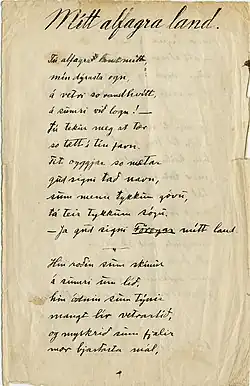 Mítt alfagra land.
Tú alfagra land mítt,
mín dýrasta ogn,
á vetri so randhvítt,
á sumri við logn! —
Tú tekur meg at tær
so tætt í tín favn.
Tit oyggjar so mætar
guð signi tað navn,
sum menn tykkum góvu,
tá teir tykkum sógu.
— Ja guð signi Föroyar mítt land
Hin roðin sum skínur
á sumri um líð,
hin ódnin sum týnir
mangt lív vetrartíð,
og myrkrið sum fjalir
mær bjartasta mál,